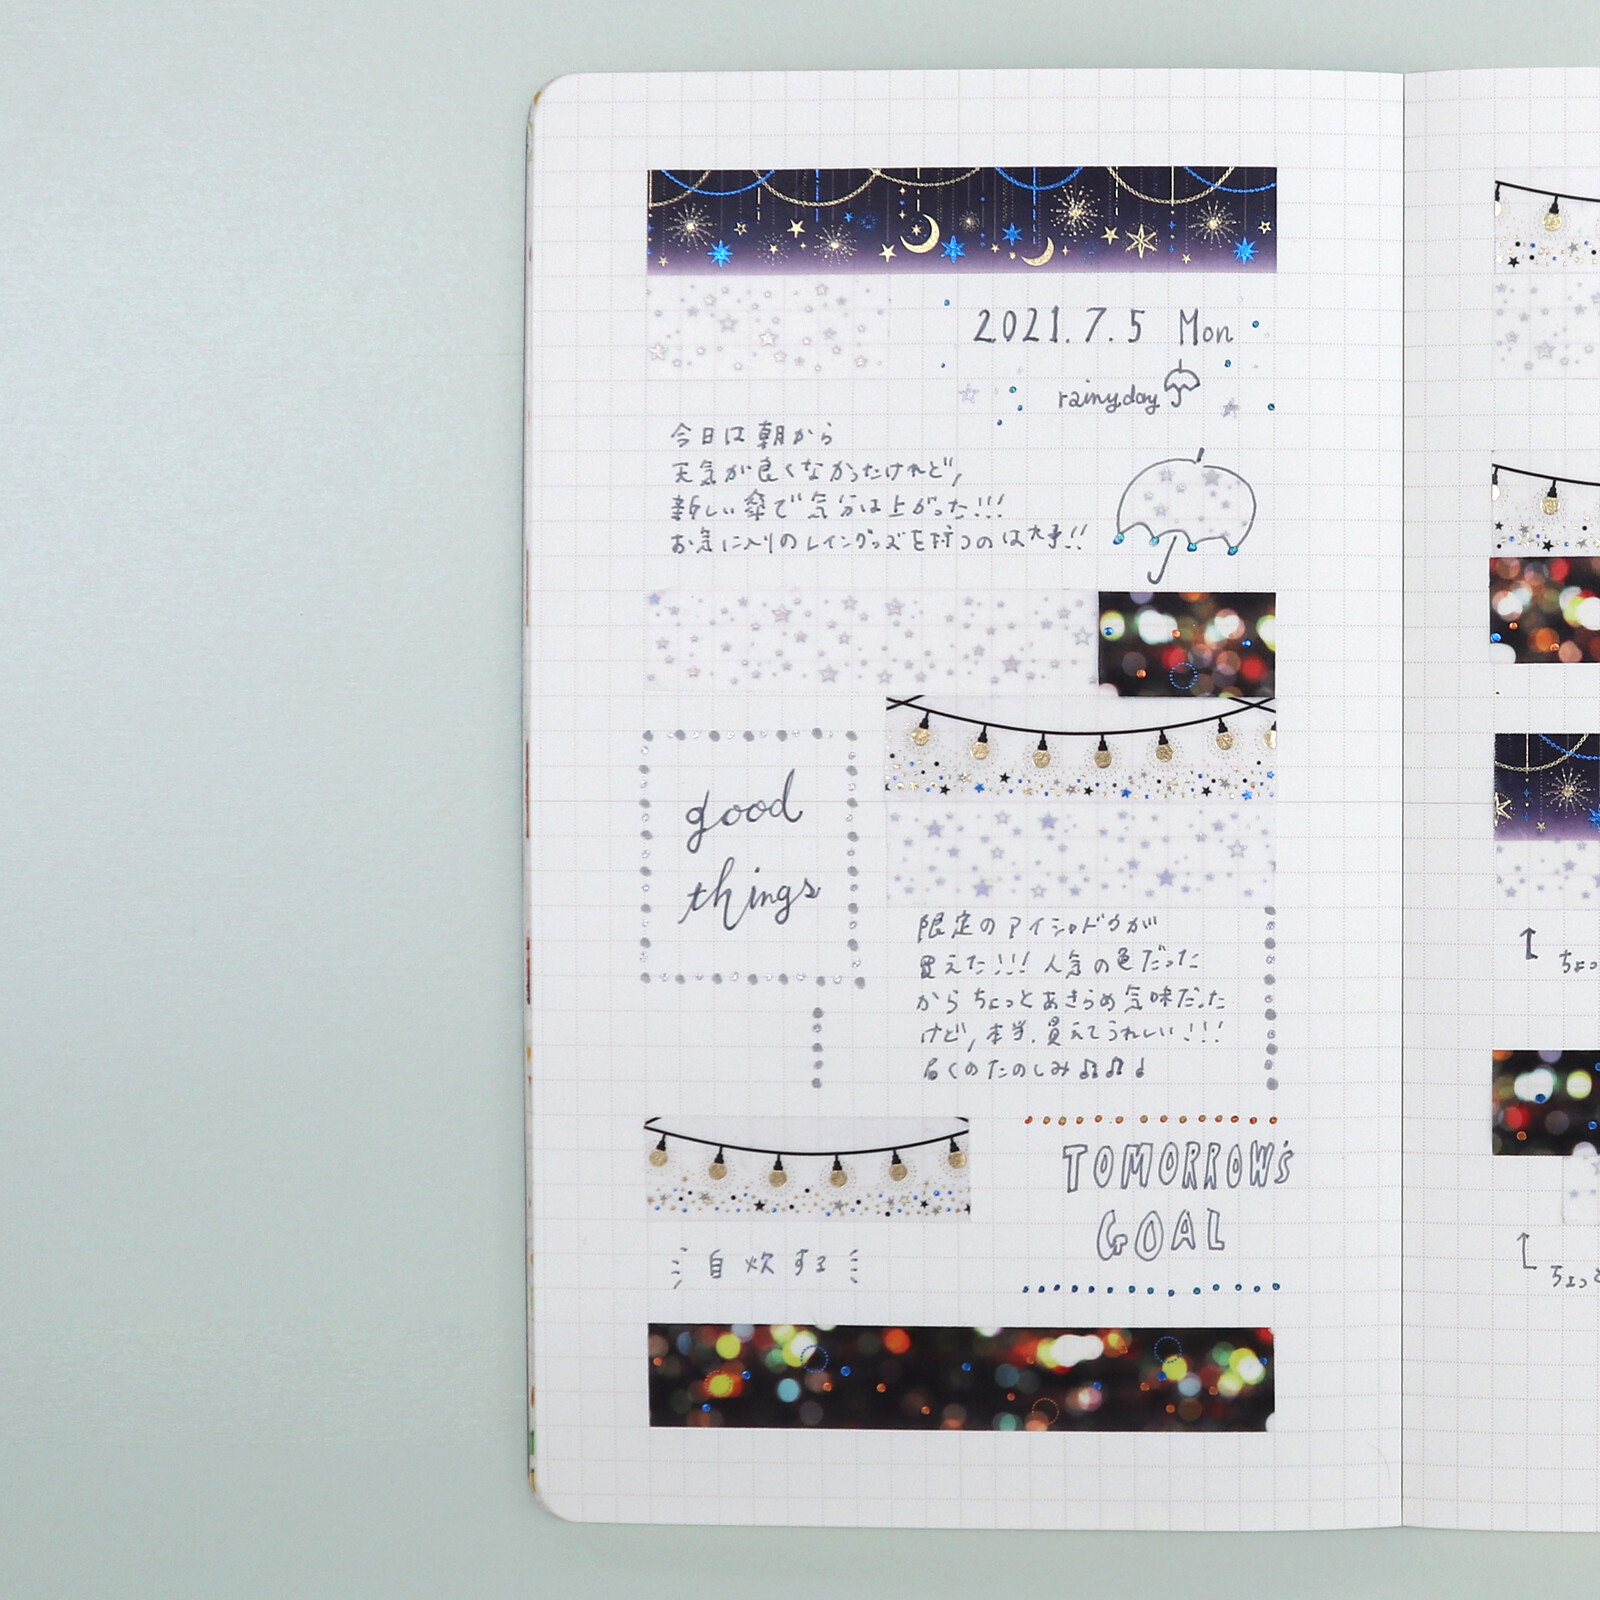 2021.7.5 Mon
rainy day
今日は朝から
天気が良くなかったけれど,
新しい傘で気分は上がった!!!
お気に入りのレイングッズを持つのは大事!!
good
things
限定のアイシャドウが
買えた!!! 人気の色だった
からちょっとあきらめ気味だった
けど, 本当、買えてうれしい!!!
届くのたのしみ♫♫♪
TOMORROW'S
GOAL
自炊する
↑ ちょっ
↑ ちょっと